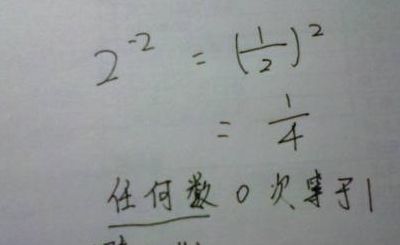 2⁻² = (1/2)²
= 1/4
任何数 0 次等于1